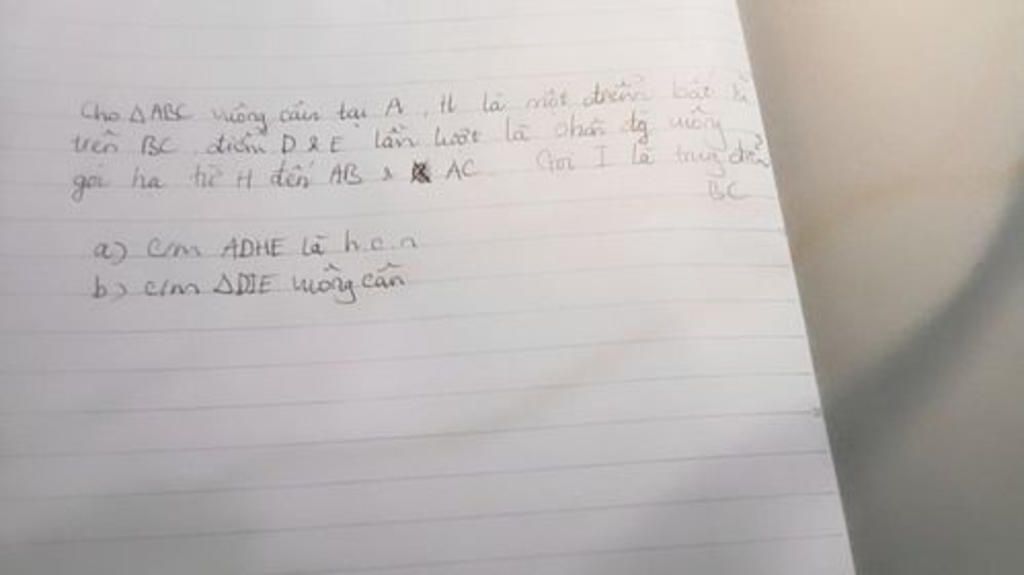 Cho ΔABC vuông cân tại A, H là một điểm bất kì
trên BC điểm D & E lần lượt là chân đg vuông
gói hạ từ H đến AB & AC Gọi I là trug điểm
BC
a) c/m ADHE là h.c.n
b) c/m ΔDIE vuông cân